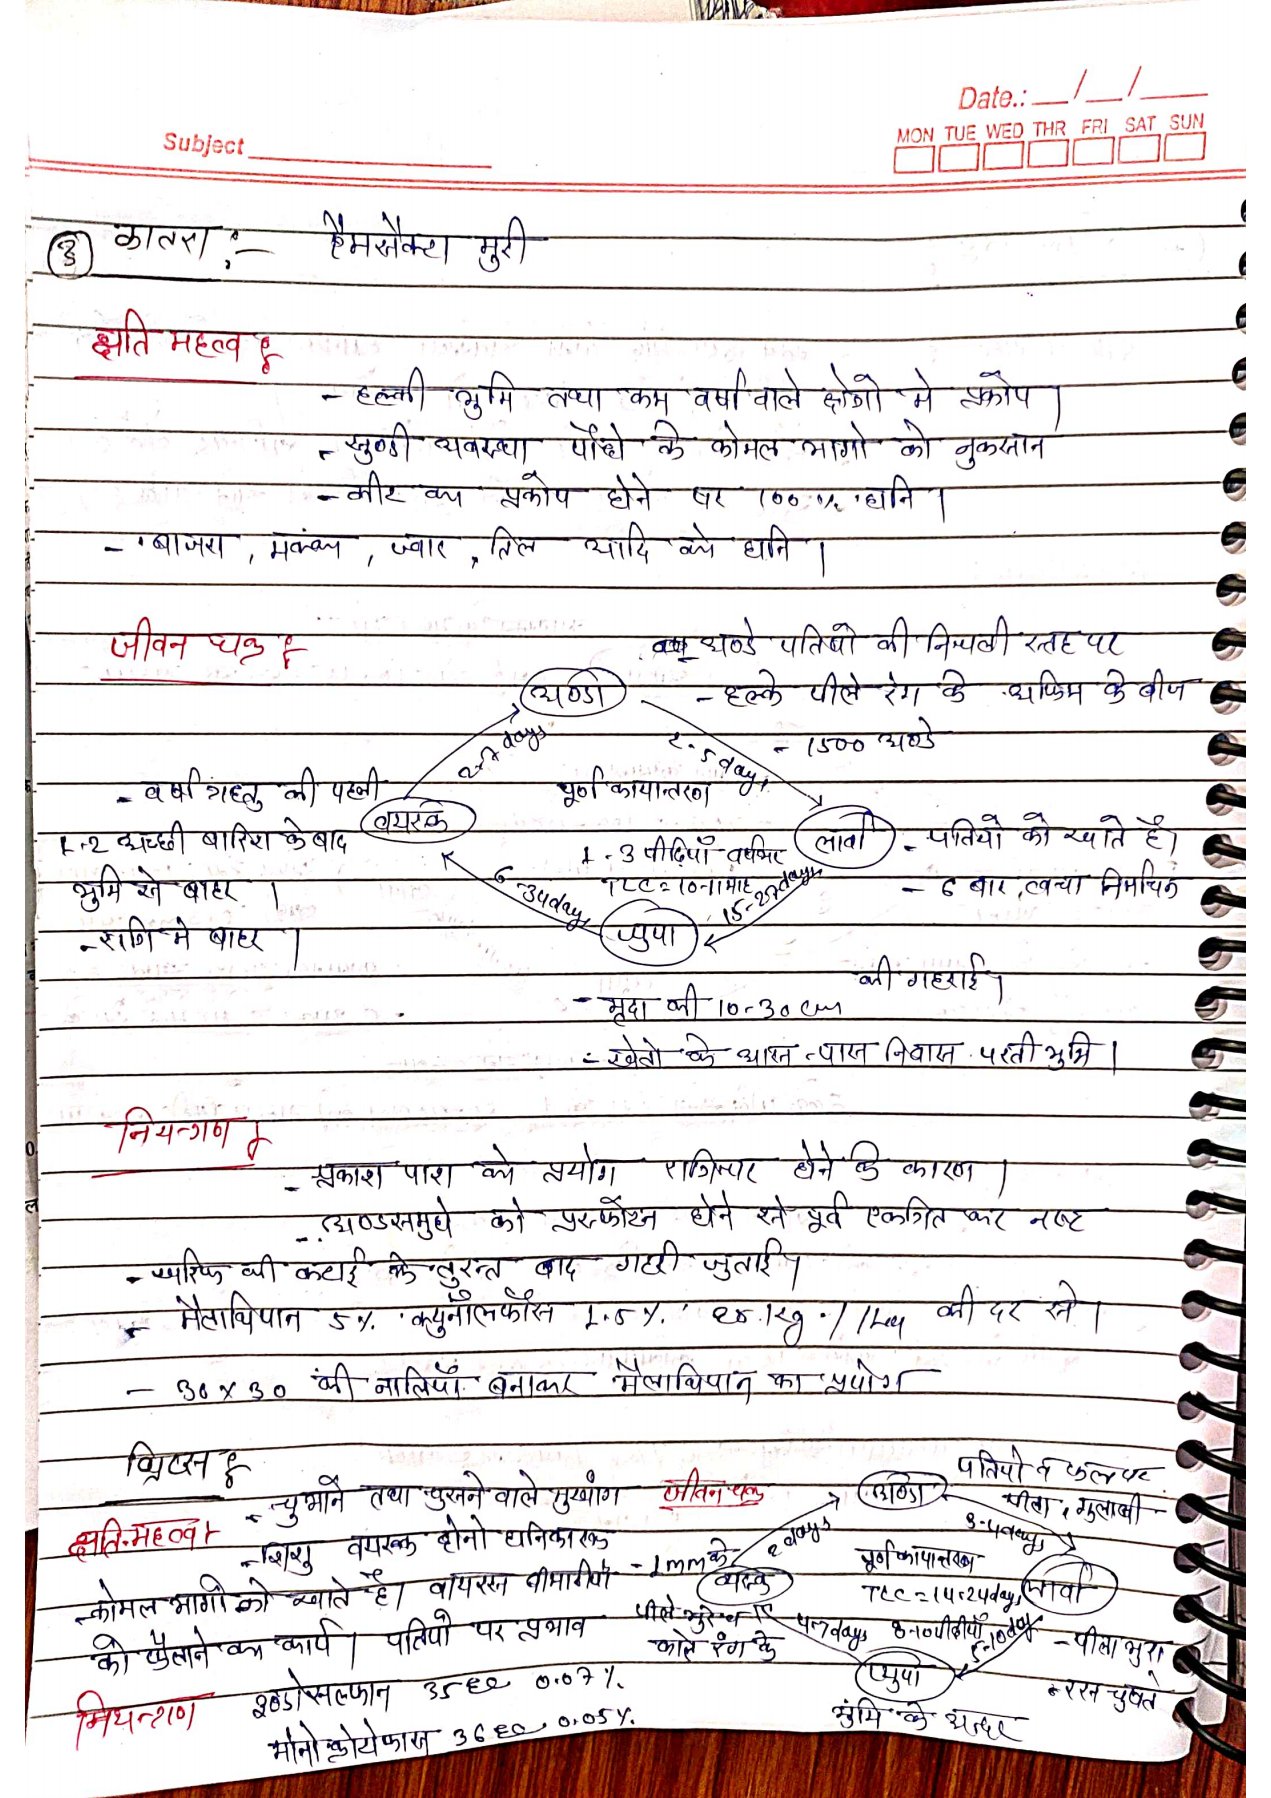 Date.: __/__/____
MON TUE WED THR FRI SAT SUN
Subject
③ कातरा :- हैमसेक्टा मुरी
क्षति महत्व :
- हल्की भुमि तथा कम वर्षा वाले क्षेत्रों मे प्रकोप ।
- सुण्डी अवस्था पौंधे के कोमल भागो को नुकसान
- कीट का प्रकोप होने पर 100 % हानि ।
- बाजरा , मक्का , ज्वार , तिल आदि को हानि ।
जीवन चक्र :
अण्डे पतियों की निचली सतह पर
- हल्के पीले रंग के अफिम के बीज
- 1500 अण्डे
अण्डा
2-7 days
2-5 days
- वर्षा ऋतु की पहली
1-2 अच्छी बारिश के बाद
भुमि से बाहर ।
- रात्रि मे बाहर ।
वयस्क
पूर्ण कायान्तरण
1-3 पीढियाँ वर्षभर
TLC = 10-11 माह
लार्वा
- पतियों को खाते है।
- 6 बार त्वचा निर्मोचन
15-27 days
34 days
प्युपा
- मृदा की 10-30 cm की गहराई ।
- खेतो के आस-पास निवास परती भुमि ।
नियन्त्रण :
- प्रकाश पाश का प्रयोग रात्रिचर होने के कारण ।
- अण्डसमुहो को प्रस्फोटन होने से पूर्व एकत्रित कर नष्ट
- खरिफ की कटाई के तुरन्त बाद गहरी जुताई ।
- मैलाथियान 5% क्युनॉलफॉस 1.5% 25 kg / ha की दर से ।
- 30 x 30 की नालियाँ बनाकर मैलाथियान का प्रयोग
थ्रिप्स :
क्षति-महत्व :
- चुभाने तथा चुसने वाले मुखांग
- शिशु वयस्क दोनो हानिकारक
- कोमल भागो को खाते है। वायरस बीमारीयों
को फैलाने का कार्य । पतियों पर प्रभाव
जीवन चक्र
अण्डा
पतियों व फल पर
पीला, गुलाबी
2 days
3-4 days
- 1mm के
पीले भुरे व
काले रंग के
वयस्क
पूर्ण कायान्तरण
TLC = 14-24 days
8-10 पीढीयाँ
लार्वा
- पीला भुरा
- रस चुसते
5-10 day
4-7 days
प्युपा
भुमि के अन्दर
नियन्त्रण
इण्डोसल्फान 35 EC 0.07 %
मोनोक्रोटोफास 36 EC 0.05 %